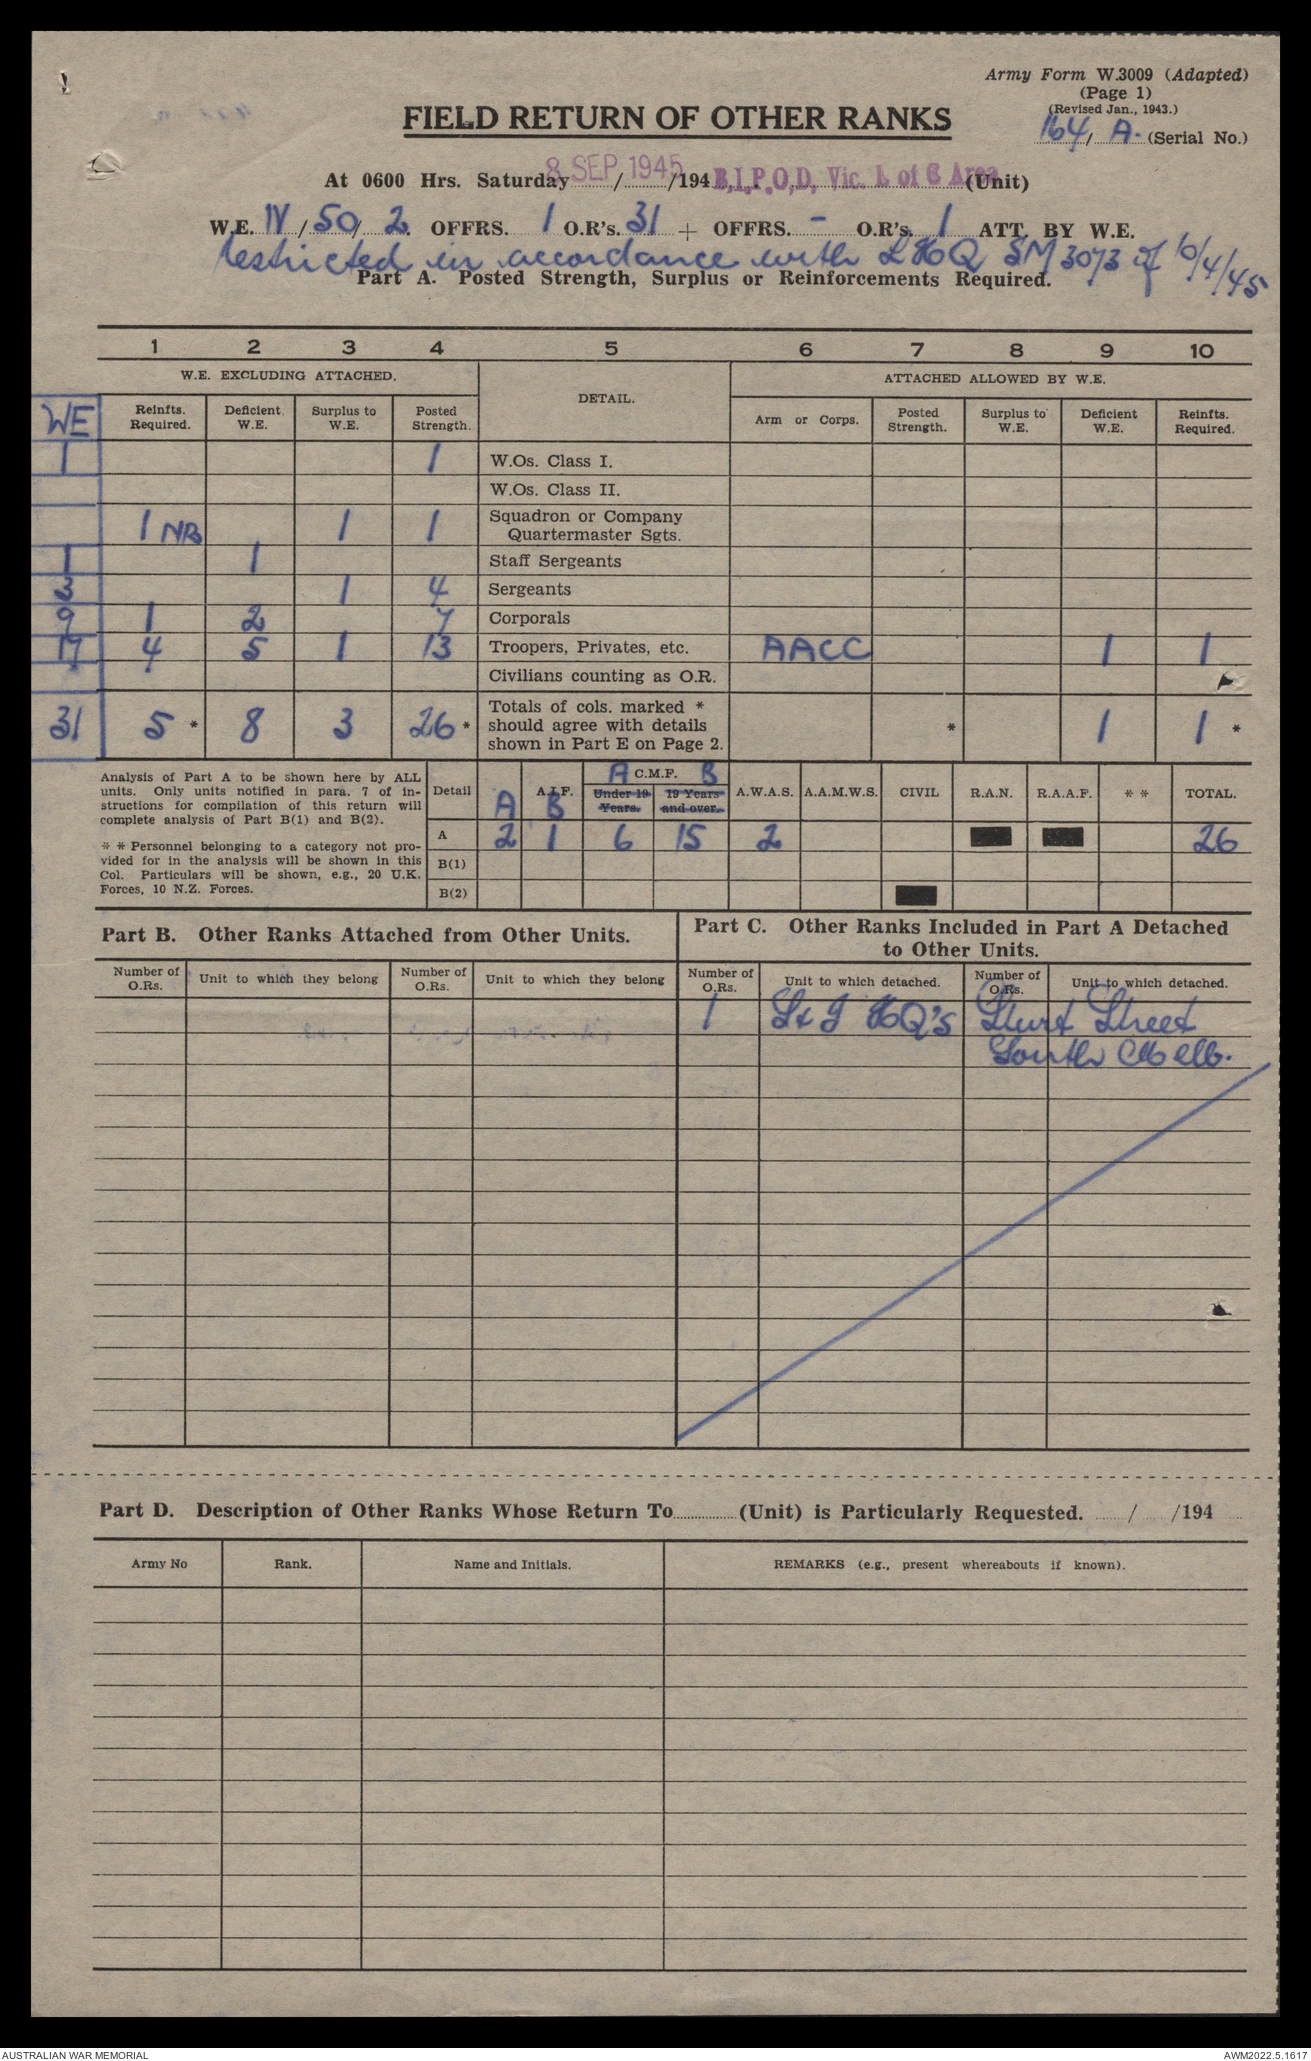 Army Form W.3009 (Adapted)
(Page 1)
(Revised Jan., 1943.)
164 / A. (Serial No.)
FIELD RETURN OF OTHER RANKS
At 0600 Hrs. Saturday 8 SEP 1945 / /194 B.I.P.O.D, Vic. L of C Area (Unit)
W.E. IV / 50 / 2. OFFRS. 1 O.R's. 31 + OFFRS. - O.R's. 1 ATT. BY W.E.
restricted in accordance with LHQ SM 3073 of 10/4/45
Part A. Posted Strength, Surplus or Reinforcements Required.
1 2 3 4 5 6 7 8 9 10
W.E. EXCLUDING ATTACHED. DETAIL. ATTACHED ALLOWED BY W.E.
WE Reinfts. Required. Deficient W.E. Surplus to W.E. Posted Strength. Arm or Corps. Posted Strength. Surplus to W.E. Deficient W.E. Reinfts. Required.
1 1 W.Os. Class I.
W.Os. Class II.
1 NB 1 1 Squadron or Company Quartermaster Sgts.
1 1 Staff Sergeants
3 1 4 Sergeants
9 1 2 7 Corporals
17 4 5 1 13 Troopers, Privates, etc. AACC 1 1
Civilians counting as O.R.
31 5 * 8 3 26 * Totals of cols. marked * should agree with details shown in Part E on Page 2. * 1 1 *
Analysis of Part A to be shown here by ALL
units. Only units notified in para. 7 of in-
structions for compilation of this return will
complete analysis of Part B(1) and B(2).
* * Personnel belonging to a category not pro-
vided for in the analysis will be shown in this
Col. Particulars will be shown, e.g., 20 U.K.
Forces, 10 N.Z. Forces.
Detail A A.I.F. B A C.M.F. B Under 19 Years. 19 Years and over. A.W.A.S. A.A.M.W.S. CIVIL R.A.N. R.A.A.F. * * TOTAL.
A 2 1 6 15 2 26
B(1)
B(2)
Part B. Other Ranks Attached from Other Units.
Part C. Other Ranks Included in Part A Detached
to Other Units.
Number of O.Rs. Unit to which they belong Number of O.Rs. Unit to which they belong Number of O.Rs. Unit to which detached. Number of O.Rs. Unit to which detached.
1 L & J HQ's Sturt Street
South Melb.
Part D. Description of Other Ranks Whose Return To (Unit) is Particularly Requested. / /194
Army No Rank. Name and Initials. REMARKS (e.g., present whereabouts if known).
AUSTRALIAN WAR MEMORIAL AWM2022.5.1617